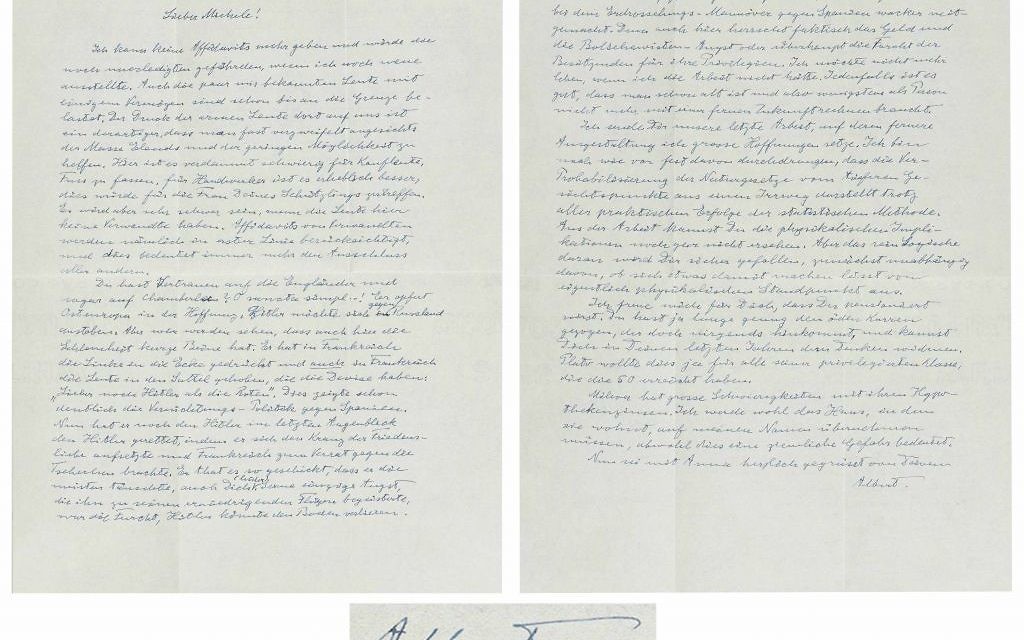 Lieber Michele!
Ich kann keine Affidavits mehr geben und würde die
noch unerledigten gefährden, wenn ich noch neue
ausstellte. Auch die paar mir bekannten Leute mit
einigem Vermögen sind schon bis an die Grenze be-
lastet. Der Druck der armen Leute dort auf uns ist
ein derartiger, dass man fast verzweifelt angesichts
der Masse Elends und der geringen Möglichkeit zu
helfen. Hier ist es verdammt schwierig für Kaufleute,
Fuss zu fassen, für Handwerker ist es erheblich besser,
dies würde für die Frau Deines Schützlings zutreffen.
Es wird aber sehr schwer sein, wenn die Leute hier
keine Verwandte haben. Affidavits von Verwandten
werden nämlich in erster Linie berücksichtigt,
und dies bedeutet immer mehr den Ausschluss
aller andern.
Du hast Vertrauen auf die Engländer und
sogar auf Chamberlain? O sancta simpl..! Er opfert
Osteuropa in der Hoffnung, Hitler möchte sich gegen Russland
austoben. Aber wir werden sehen, dass auch hier die
Schlauheit kurze Beine hat. Er hat in Frankreich
die Linke in die Ecke gedrückt und auch in Frankreich
die Leute in den Sattel gehoben, die die Devise haben:
"Lieber noch Hitler als die Roten". Dies zeigte schon
deutlich die Vernichtungs-Politik gegen Spanien.
Nun hat er noch den Hitler im letzten Augenblick
den Hitler gerettet, indem er sich den Kranz der Friedens-
liebe aufsetzte und Frankreich zum Verrat gegen die
Tschechen brachte. Er that es so geschickt, dass er die
meisten täuschte, auch Dich (leider). Seine einzige Angst,
die ihn zu seinen erniedrigenden Flügen begeisterte,
war die Furcht, Hitler könnte den Boden verlieren.
bei dem Erdrosselungs-Mannöver gegen Spanien wacker mit-
gemacht. Denn auch hier herrscht faktisch das Geld und
die Bolschewisten-Angst oder überhaupt die Furcht der
Besitzenden für ihre Privilegien. Ich möchte nicht mehr
leben, wenn ich die Arbeit nicht hätte. Jedenfalls ist es
gut, dass man schon alt ist und also wenigstens als Person
nicht mehr mit einer fernen Zukunft rechnen braucht.
Ich sende Dir unsere letzte Arbeit, auf deren fernere
Ausgestaltung ich grosse Hoffnungen setze. Ich bin
nach wie vor fest davon durchdrungen, dass die Ver-
Probabilisierung der Naturgesetze vom tieferen Ge-
sichtspunkte aus einen Irrweg darstellt trotz
aller praktischen Erfolge der statistischen Methode.
Aus der Arbeit kannst Du die physikalischen Impli-
kationen noch gar nicht ersehen. Aber das rein Logische
daran wird Dir sicher gefallen, zunächst unabhängig
davon, ob sich etwas damit machen lässt vom
eigentlich physikalischen Standpunkt aus.
Ich freue mich für Dich, dass Du pensioniert
wirst. Du hast ja lange genug den öden Karren
gezogen, der doch nirgends hinkommt, und kannst
Dich in Deinen letzten Jahren dem Denken widmen.
Plato wollte dies ja für alle seiner privilegierten Klasse,
die die 50 erreicht haben.
Mileva hat grosse Schwierigkeiten mit ihren Hypo-
thekenzinsen. Ich werde wohl das Haus, in dem
sie wohnt, auf meinen Namen übernehmen
müssen, obwohl dies eine ziemliche Gefahr bedeutet.
Nun sei mit Anna herzlich gegrüsst von Deinem
Albert.